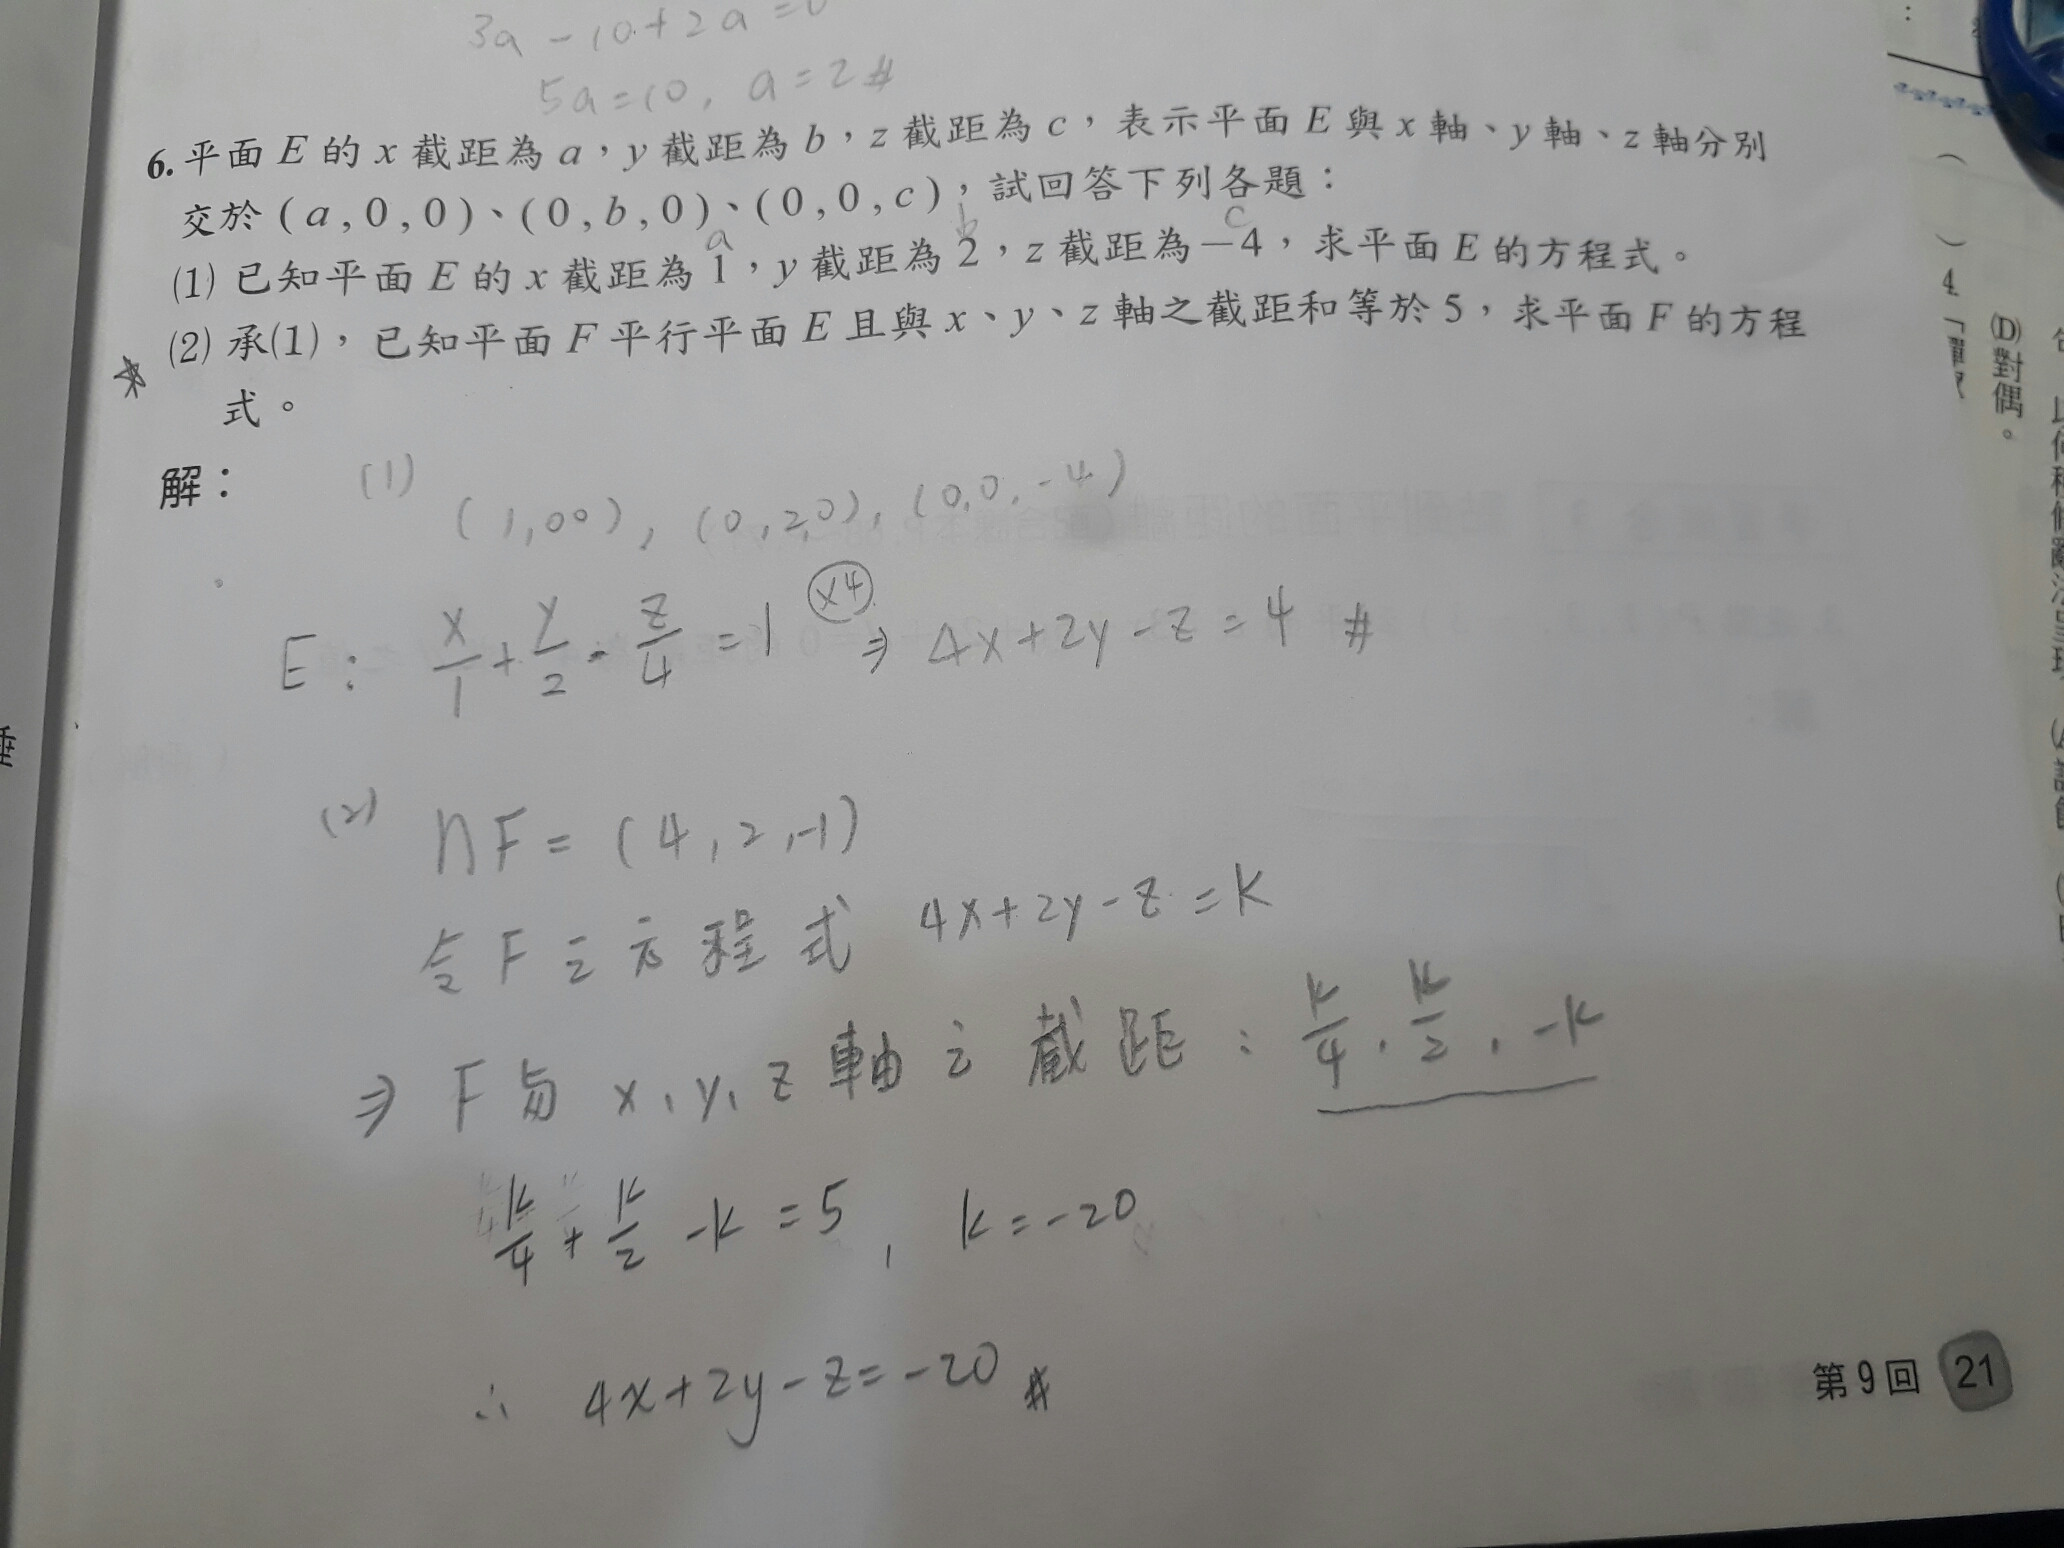 3a-10+2a=0
5a=10, a=2#
6.平面E的x截距為a，y截距為b，z截距為c，表示平面E與x軸、y軸、z軸分別
交於(a,0,0)、(0,b,0)、(0,0,c)，試回答下列各題：
a b c
(1)已知平面E的x截距為1，y截距為2，z截距為－4，求平面E的方程式。
(2)承(1)，已知平面F平行平面E且與x、y、z軸之截距和等於5，求平面F的方程
式。
解：
(1)
(1,00), (0,2,0), (0,0,-4)
E: x/1+y/2-z/4=1 ×4 ⇒ 4x+2y-z=4 #
(2) nF=(4,2,-1)
令F之方程式 4x+2y-z=k
⇒ F與x,y,z軸之截距: k/4, k/2, -k
k/4+k/2-k=5, k=-20
∴ 4x+2y-z=-20 #
第9回 21
4.「
(D)對偶。